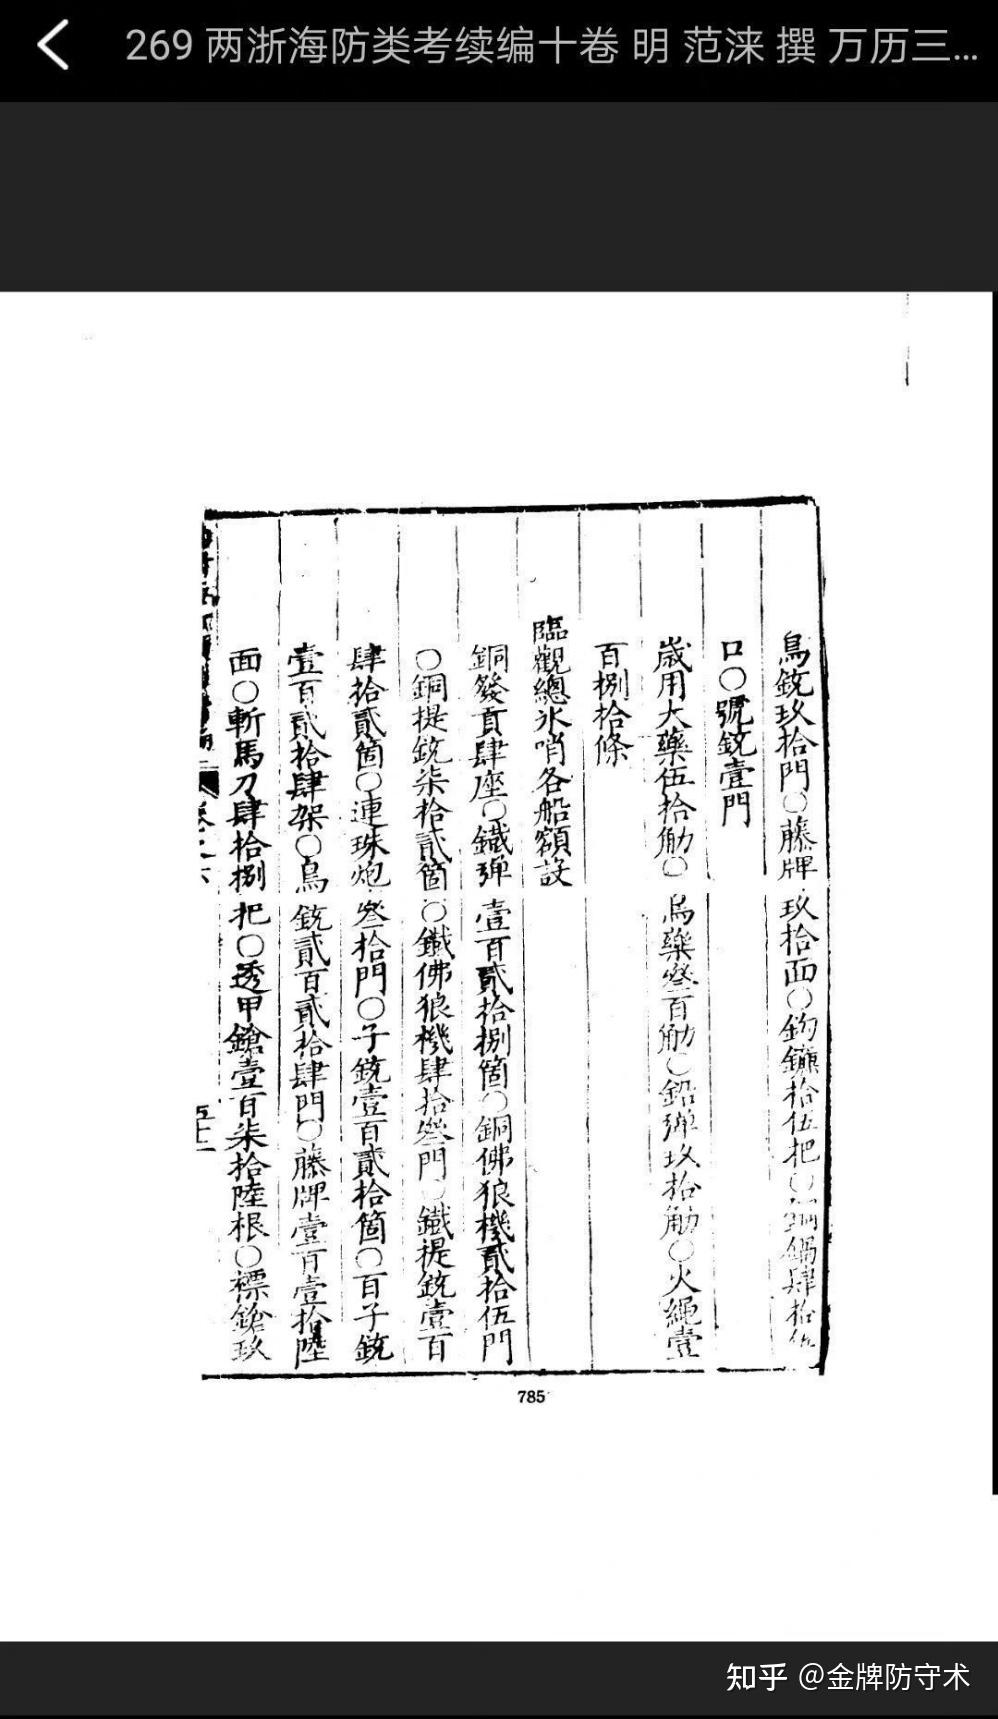 269 两浙海防类考续编十卷 明 范涞 撰 万历三...
鳥銃玖拾門〇藤牌玖拾面〇鈎鐮拾伍把〇銅鍋肆拾伍
口〇號銃壹門
歲用大藥伍拾觔〇鳥藥叄百觔〇鉛彈玖拾觔〇火繩壹
百捌拾條
臨觀總水哨各船額設
銅發貢肆座〇鐵彈壹百貳拾捌箇〇銅佛狼機貳拾伍門
〇銅提銃柒拾貳箇〇鐵佛狼機肆拾叄門〇鐵提銃壹百
肆拾貳箇〇連珠炮叄拾門〇子銃壹百貳拾箇〇百子銃
壹百貳拾肆架〇鳥銃貳百貳拾肆門〇藤牌壹百壹拾陸
面〇斬馬刀肆拾捌把〇透甲鎗壹百柒拾陸根〇標鎗玖
卷之六
五十二
785
知乎 @金牌防守术